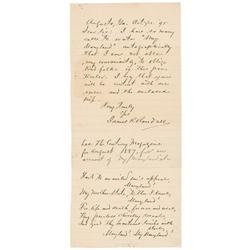 Augusta, Ga.
Dear Sir: I have so many
calls to write "My
Maryland" autographically
that I am not able,
my community, to oblige
folks in this par-
ticular. I beg that you
will be content with one
verse and the enclosed
Very Truly
Yrs
James R. Randall
See The Century Magazine
for August 1887, for an
account of My Maryland
Hark to an exiled son's appeal,
Maryland!
My Mother State, to thee I kneel,
Maryland!
For life and death, for woe and weal,
Thy peerless chivalry reveal,
And gird thy beauteous limbs with
steel,
Maryland! My Maryland!